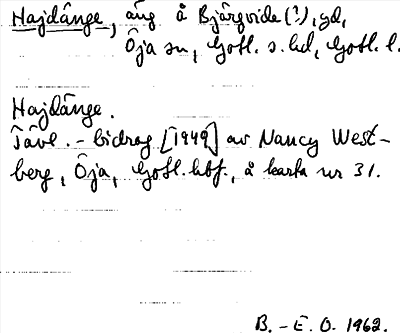 Hajdänge, äng å Bjärgvide (?), gd,
Öja sn, Gotl. s. hd, Gotl. l.
Hajdänge.
Tävl.-bidrag [1949] av Nancy West-
berg, Öja, Gotl. hbf., å karta nr 31.
B.-E. O. 1962.